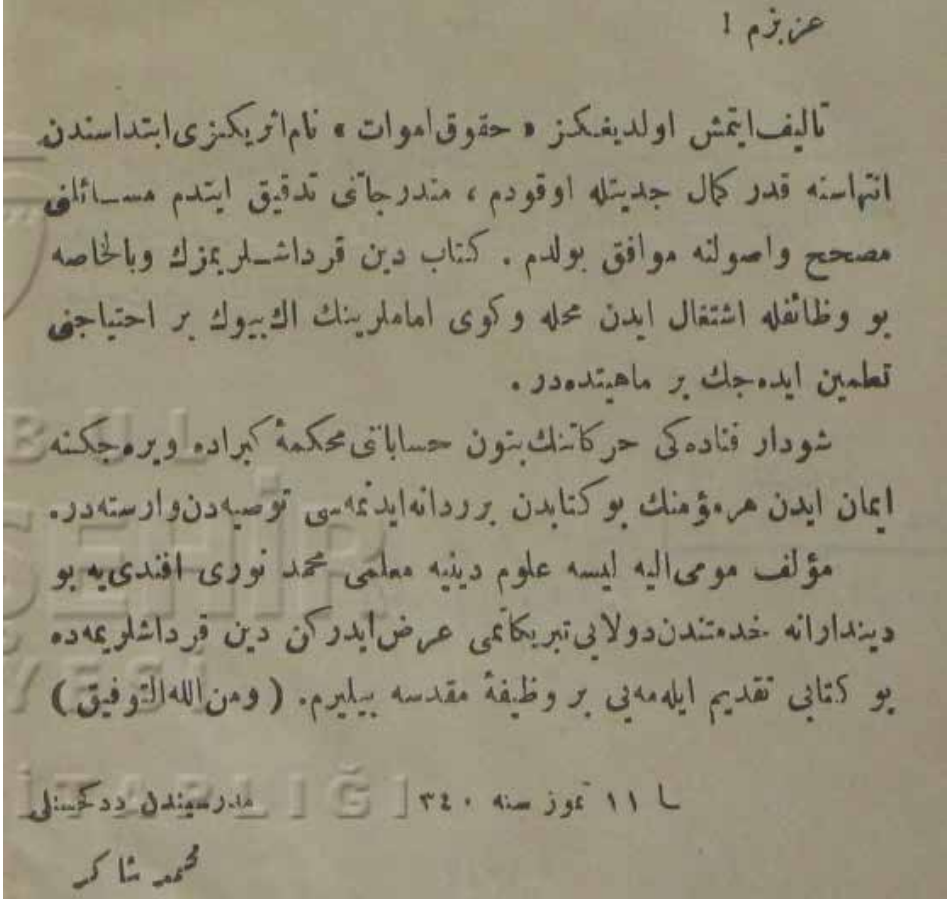 عزیزم !
تالیف ایتمش اولدیغکز « حقوق اموات » نام اثریکزی ابتداسندن
انتهاسنه قدر کمال جدیتله اوقودم ، مندرجاتی تدقیق ایتدم مسـائلنی
مصحح واصولنه موافق بولدم . کتاب دین قرداشـلریمزك وبالخاصه
بو وظائفله اشتغال ایدن محله وکوی اماملرینك اك بیوك بر احتیاجنی
تطمین ایده‌جك بر ماهیتده‌در .
شودار فناده‌کی حرکاتنك بتون حساباتی محکمهٔ کبراده ویره‌جکنه
ایمان ایدن هرمؤمنك بو کتابدن برردانه‌ایدنمه‌سی توصیه‌دن‌وارسته‌در.
مؤلف مومی‌الیه لیسه علوم دینیه معلمی محمد نوری افندی‌یه بو
دیندارانه خدمتندن‌دولایی‌تبریکاتمی عرض‌ایدرکن دین قرداشلریمه‌ده
بو کتابی تقدیم ایله‌مه‌یی بر وظیفهٔ مقدسه بیلیرم. (ومن‌الله‌التوفیق)
١١ تموز سنه ٣٤٠ مدرسیندن
محمد شاکر
BUL
ŞEHİR
YESİ
İTAPLIĞI